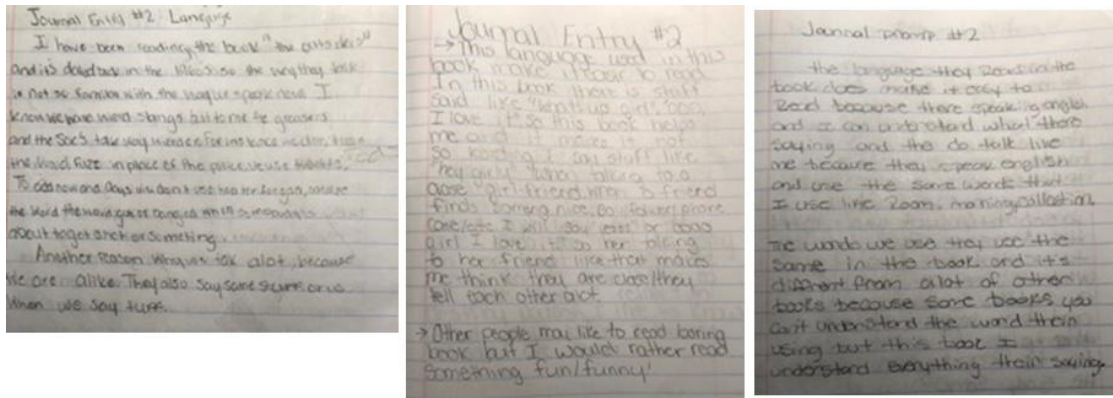 Journal Entry #2: Language
I have been reading the book "the outsiders"
and it's dated back in the 1960's so the way they talk
is not so familiar with the way we speak now. I
know we have word slangs but to me the greasers
and the Soc's talk way
the word fuzz in place of the police, we use
we don't use
the word
about to get or something.
Another reason why we talk alot, because
we are alike. They also say some stuff or us
when we say tuff.
Journal Entry #2
→ This language used in this
book make it easy to read
In this book there is stuff
said like "what's up girl" "ooo,
I love it" so this book helps
me and it makes it not
so boring. I say stuff like
"hey girly" when talking to a
close "girl-friend. when a friend
finds something nice, so
I will say or ooo
girl I love it" so her talking
to her friend like that makes
me think they are close/they
tell each other alot
→ Other people may like to read boring
book but I would rather read
something fun/funny!
Journal promp #2
the language they in the
book does make it easy to
Read because there speaking english
and I can understand what there
saying and the do talk like
me because they speak english
and use the same words that
I use like Room, morning, collection.
The words we use they use the
same in the book and it's
different from alot of other
books because some books you
can't understand the word their
using but this book I
understand everything their saying.